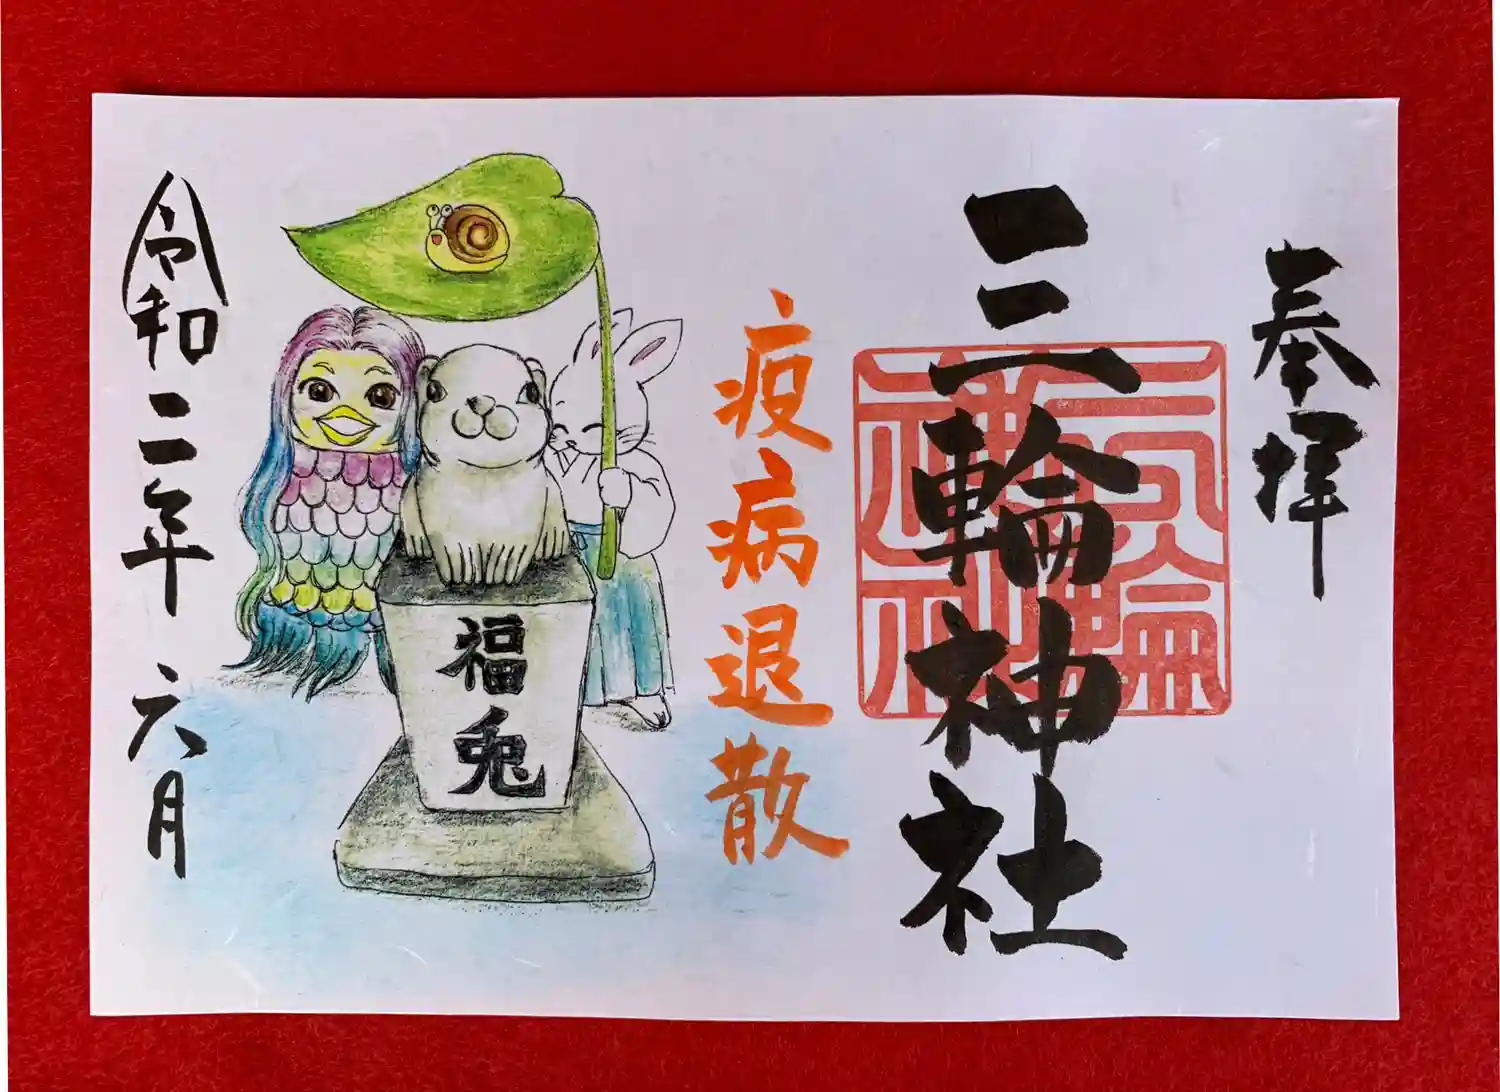 奉拝
三輪神社
疫病退散
福兎
令和二年六月